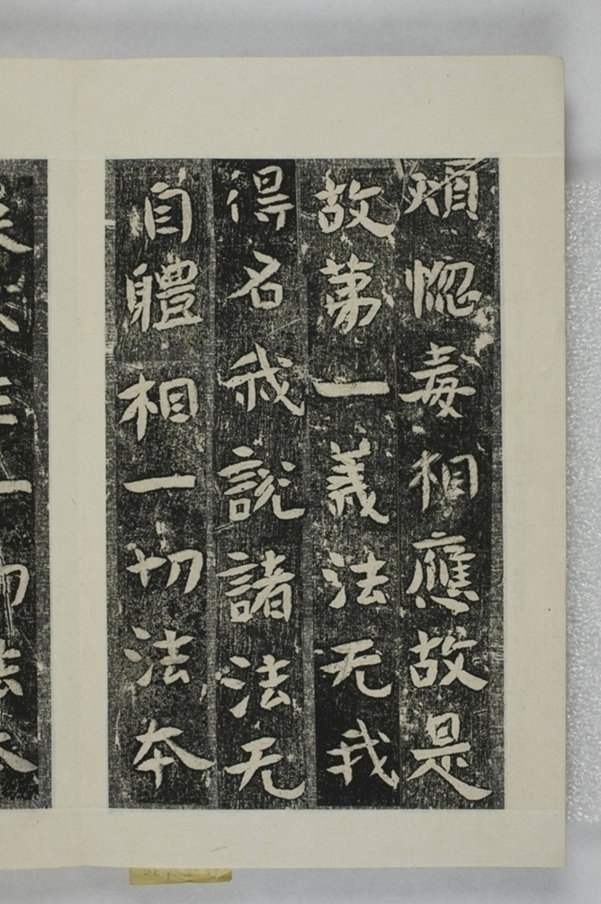 煩惱毒相應故是
故第一義法无我
得名我說諸法无
自體相一切法本